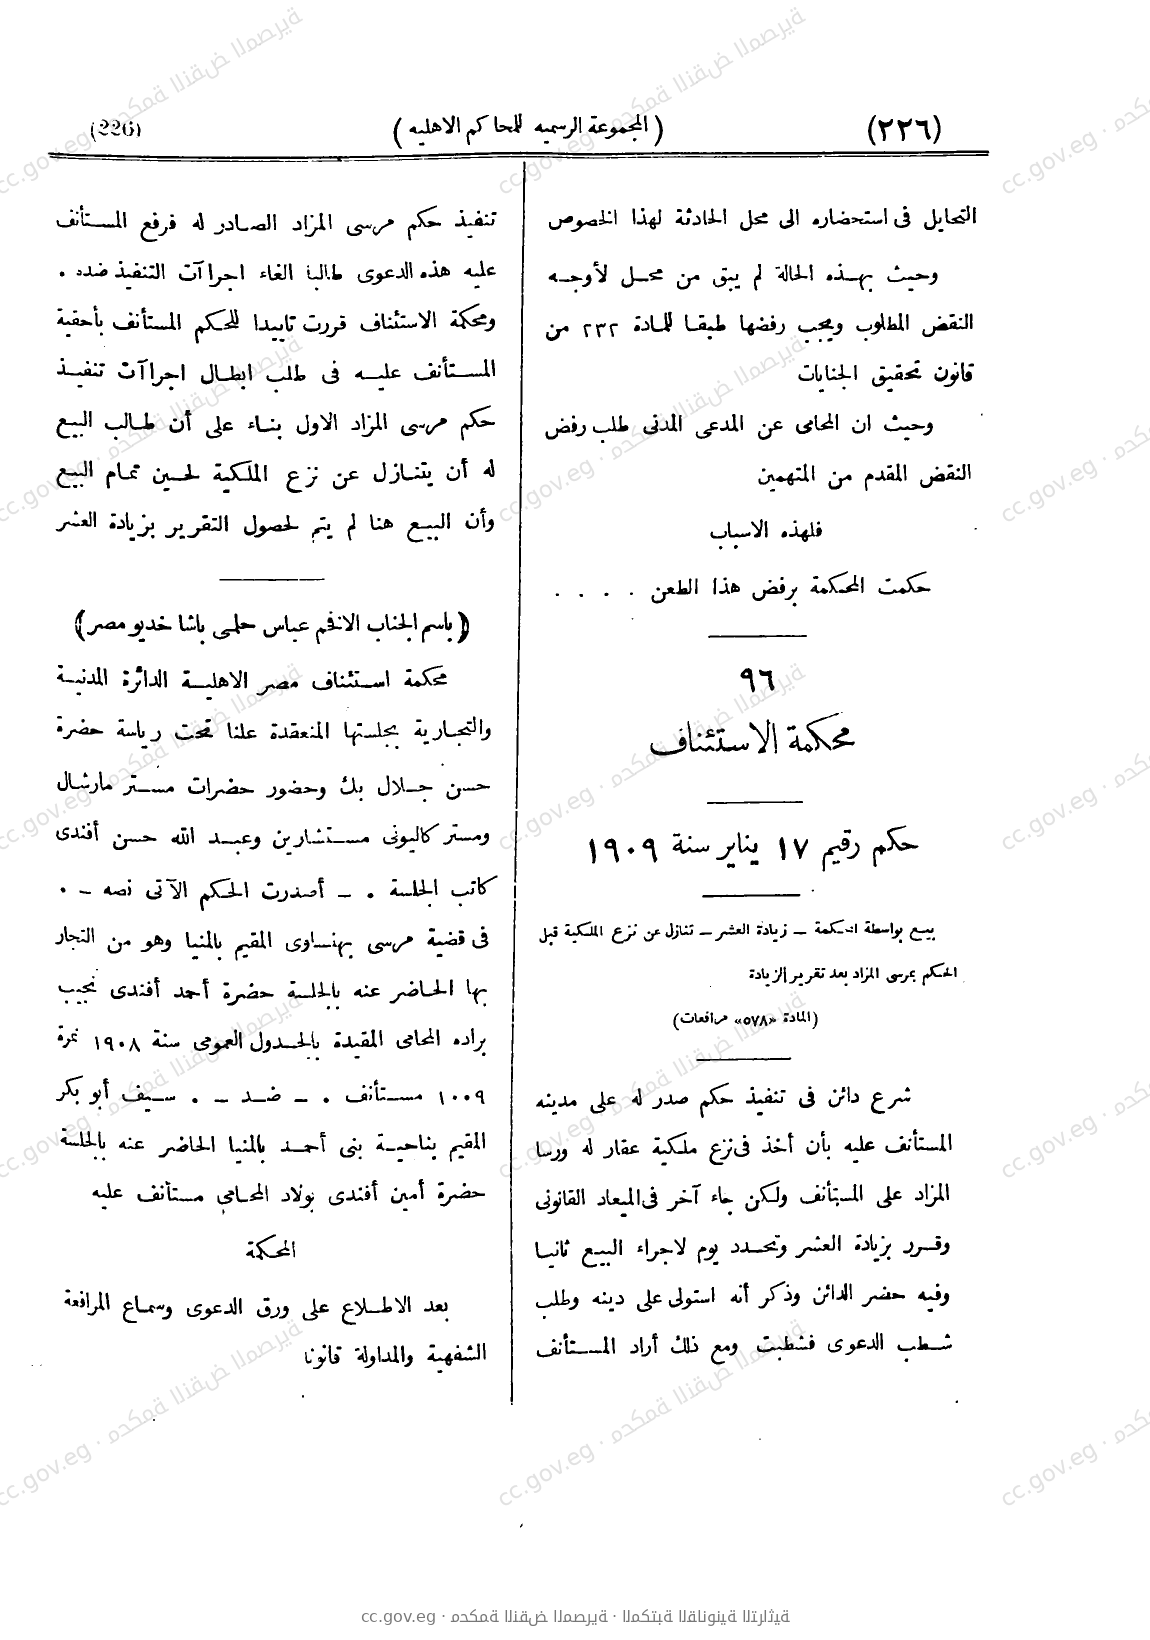 (٢٢٦)
(المجموعة الرسميه للمحاكم الاهليه)
(226)
التحايل فى استحضاره الى محل الحادثة لهذا الخصوص
وحيث بهذه الحالة لم يبق من محل لأوجه
النقض المطلوب ويجب رفضها طبقا للمادة ٢٣٢ من
قانون تحقيق الجنايات
وحيث ان المحامى عن المدعى المدنى طلب رفض
النقض المقدم من المتهمين
فلهذه الاسباب
حكمت المحكمة برفض هذا الطعن . . . .
٩٦
محكمة الاستئناف
حكم رقيم ١٧ يناير سنة ١٩٠٩
بيع بواسطة المحكمة – زيادة العشر – تنازل عن نزع الملكية قبل
الحكم بمرسى المزاد بعد تقرير الزيادة
(المادة «٥٧٨» مرافعات)
شرع دائن فى تنفيذ حكم صدر له على مدينه
المستأنف عليه بأن أخذ فى نزع ملكية عقار له ورسا
المزاد على المستأنف ولكن جاء آخر فى الميعاد القانونى
وقرر بزيادة العشر وتحدد يوم لاجراء البيع ثانيا
وفيه حضر الدائن وذكر أنه استولى على دينه وطلب
شطب الدعوى فشطبت ومع ذلك أراد المستأنف
تنفيذ حكم مرسى المزاد الصادر له فرفع المستأنف
عليه هذه الدعوى طالبا الغاء اجراآت التنفيذ ضده .
ومحكمة الاستئناف قررت تاييدا للحكم المستأنف بأحقية
المستأنف عليه فى طلب ابطال اجراآت تنفيذ
حكم مرسى المزاد الاول بناء على أن طالب البيع
له أن يتنازل عن نزع الملكية لحين تمام البيع
وأن البيع هنا لم يتم لحصول التقرير بزيادة العشر
(باسم الجناب الافخم عباس حلمى باشا خديو مصر)
محكمة استئناف مصر الاهلية الدائرة المدنية
والتجارية بجلستها المنعقدة علنا تحت رياسة حضرة
حسن جلال بك وحضور حضرات مستر مارشال
ومستر كاليونى مستشارين وعبد الله حسن أفندى
كاتب الجلسة . – أصدرت الحكم الآتى نصه – .
فى قضية مرسى بهنساوى المقيم بالمنيا وهو من التجار
بها الحاضر عنه بالجلسة حضرة أحمد أفندى نجيب
براده المحامى المقيدة بالجدول العمومى سنة ١٩٠٨ نمرة
١٠٠٩ مستأنف . – ضد – . سيف أبو بكر
المقيم بناحية بنى أحمد بالمنيا الحاضر عنه بالجلسة
حضرة أمين أفندى بولاد المحامى مستأنف عليه
المحكمة
بعد الاطلاع على ورق الدعوى وسماع المرافعة
الشفهية والمداولة قانونا
cc.gov.eg · محكمة النقض المصرية · المكتبة القانونية التراثية